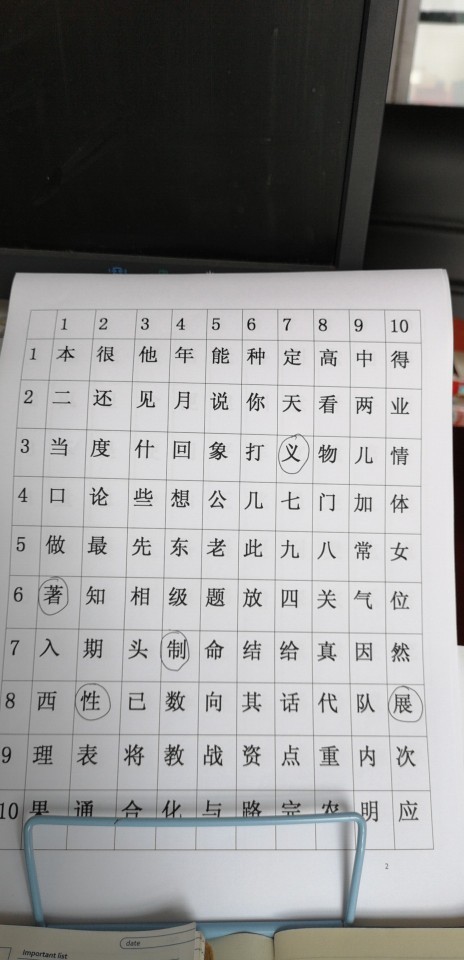 1 2 3 4 5 6 7 8 9 10
1 本 很 他 年 能 种 定 高 中 得
2 二 还 见 月 说 你 天 看 两 业
3 当 度 什 回 象 打 义 物 儿 情
4 口 论 些 想 公 几 七 门 加 体
5 做 最 先 东 老 此 九 八 常 女
6 著 知 相 级 题 放 四 关 气 位
7 入 期 头 制 命 结 给 真 因 然
8 西 性 已 数 向 其 话 代 队 展
9 理 表 将 教 战 资 点 重 内 次
10 果 通 合 化 与 路 完 农 明 应
2
date
Important list